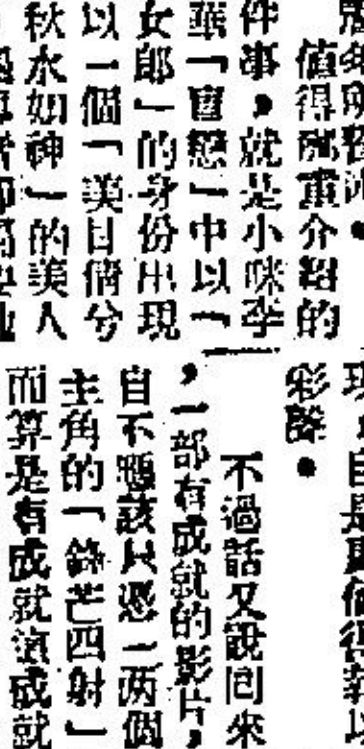 值得鄭重介紹的
件事,就是小咪李
華「戀」中以「
女郎」的身份出現
以一個「美目倩兮
秋水如神」的美人
自是值得以
彩聲。
不過話又說回來
,一部有成就的影片,
自不應該只憑一两個
主角的「鋒芒四射」
而算是有成就成就